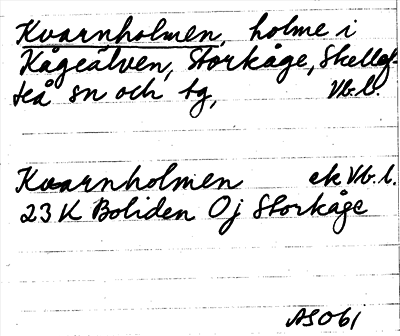 Kvarnholmen, holme i
Kågeälven, Storkåge, Skellef-
teå sn och tg, Vb.l.
Kvarnholmen ek Vb.l.
23 K Boliden Oj Storkåge
AS061